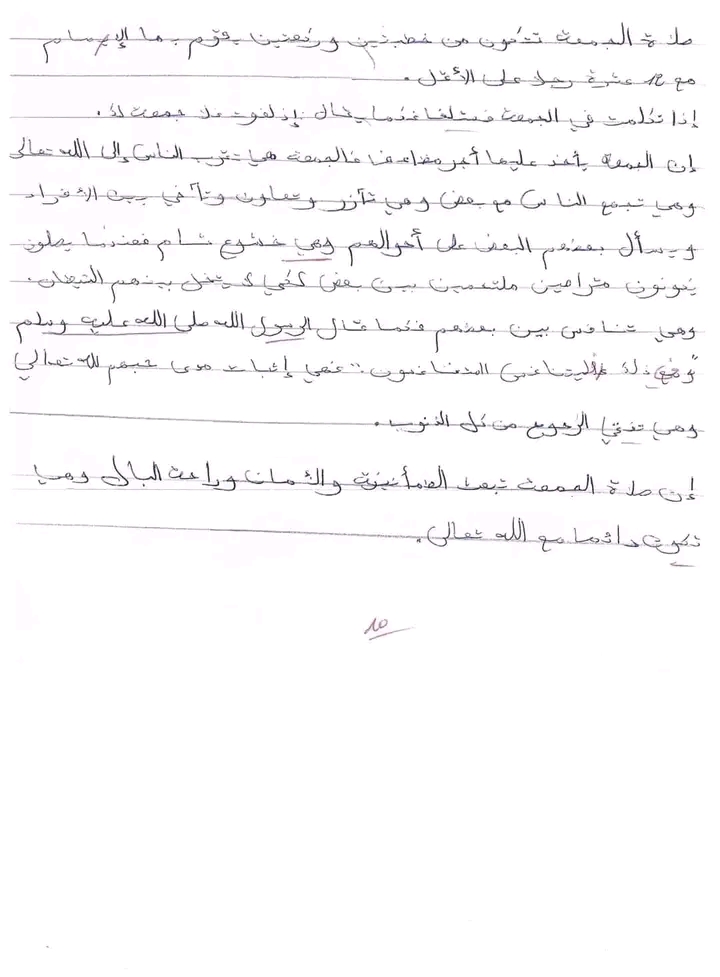 صلاة الجمعة تتكون من خطبتين وركعتين يقوم بها الإمام
مع 12 عشرة رجلا على الأقل.
إذا تكلمت في الجمعة فستلغا فكما يقال : إذ لغوت فلا جمعة لك.
إن الجمعة يأخذ عليها أجر مضاعفا فالجمعة هي تقرب الناس إلى الله تعالى
وهي تجمع الناس مع بعض وهي تآزر وتعاون وتآخي بين الأفراد
ويسأل بعضهم البعض على أحوالهم وهي خشوع تام فعندما يصلون
يكونون متراصين ملتحمين بين بعض لكي لا يدخل بينهم الشيطان.
وهي تنافس بين بعضهم فكما قال الرسول الله صلى الله عليه وسلم
"وفي ذلك فليتنافس المتنافسون" فهي إثبات مدى حبهم لله تعالى
وهي تعني الرجوع من كل الذنوب.
إن صلاة الجمعة تبعث الطمأنينة والأمان وراحة البال وهي
تكون دائما مع الله تعالى.
10